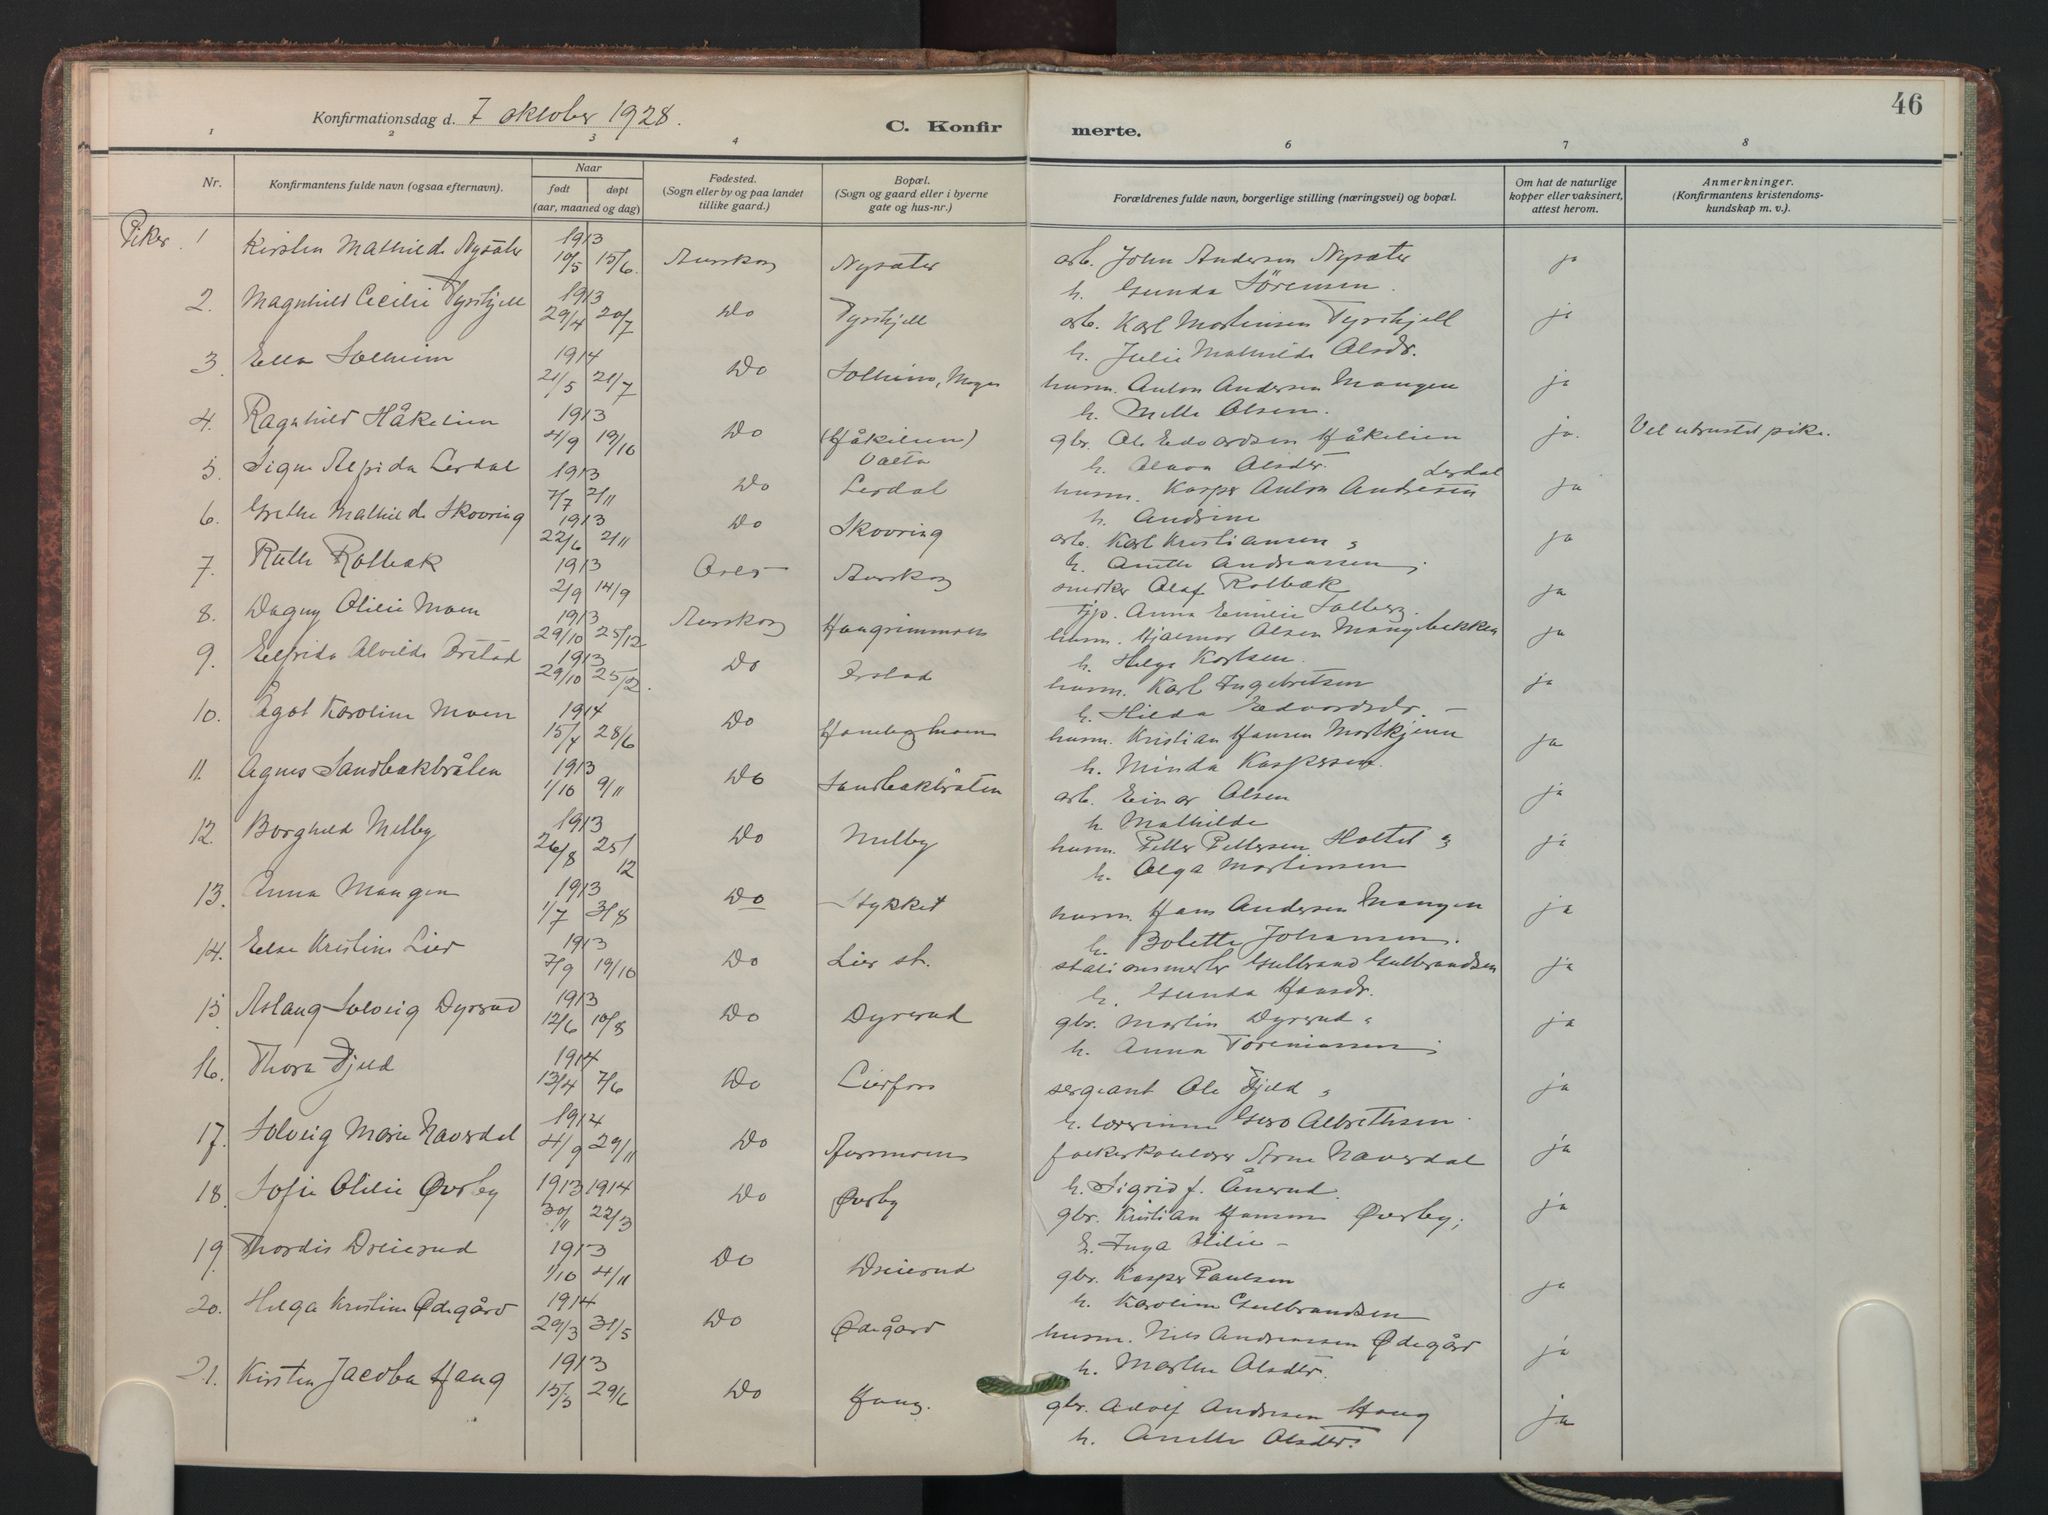 46
Konfirmationsdag d. 7 oktober 1928.
C. Konfirmerte.
1 2 3 4 5 6 7 8
Nr.
Konfirmantens fulde navn (ogsaa efternavn).
Naar
født døpt
(aar, maaned og dag)
Fødested.
(Sogn eller by og paa landet
tillike gaard.)
Bopæl.
(Sogn og gaard eller i byerne
gate og hus-nr.)
Forældrenes fulde navn, borgerlige stilling (næringsvei) og bopæl.
Om hat de naturlige
kopper eller vaksinert,
attest herom.
Anmerkninger.
(Konfirmantens kristendoms-
kundskap m. v.).
Piker. 1 Kirsten Mathilde Nysæter 1913 10/5 15/6. Aurskog Nysæter arb. John Andersen Nysæter ja
h. Gunda Sørensen.
2. Magnhild Cecilie Tyrihjell 1913 29/4 20/7 Do Tyrihjell arb. Karl Martinsen Tyrihjell ja
h. Julie Mathilde Olsdr.
3. Ella Solheim 1914 21/5 21/7 Do Solheim, husm. Anton Andersen Mangen ja
h. Mille Olsen.
4. Ragnhild Håkelien 1913 4/9 19/10 Do (Håkilien) gbr. Ole Edvardsen Håkelien ja. Vel utrustet pike.
h. Olava Olsdtr.
5. Signe Lerdal 1913 7/7 2/11 Do Lerdal husm. Kasper Anton Andresen Lerdal ja
h. Andrine
6. Grethe Mathilde Skovring 1913 22/6 2/11 Do Skovring arb. Karl Kristiansen ja
h. Anette Andreassen
7. Ruth Rolbæk 1913 2/9 14/9 Oslo Aurskog snekker Olaf Rolbæk ja
Anna Emilie Solberg.
8. Dagny Otilie Moen 1913 29/10 25/12 Aurskog husm. Hjalmar Olsen Mangebakken ja
h. Helga Karlsen.
9. Elfrida Alvilde Ørstad 1913 29/10 25/12. Do Ørstad husm. Karl Ingebretsen ja
h. Hilda Edvardsdr.
10. Ågot Karoline Moen 1914 15/4 28/6 Do husm. Kristian Hansen Mortkjenn ja
h. Minda Kaspersen.
11. Agnes Sandbækbråten 1913 1/10 9/11 Do Sandbækbråten arb. Einar Olsen ja
h. Mathilde
12. Borghild Melby 1913 26/8 25/12 Do Melby husm. Petter Pettersen Holtet ja
h. Olga Martinsen
13. Anna Mangen 1913 1/7 3/8 Do Stykket husm. Hans Andersen Mangen ja
h. Bolette Johansen.
14. Else Kristine Lier 1913 7/9 19/10 Do Lier st. stationsmester Gulbrand Gulbrandsen ja
h. Gunda Hansdr.
15 Aslaug Solveig Dyrerud 1913 12/6 10/8 Do Dyrerud gbr. Martin Dyrerud ja
h. Anna
16. Thora Fjeld 1914 13/4 7/6 Do Lierfoss sergeant Ole Fjeld ja
h. lærerinne Gero Albrethsen.
17. Solveig Marie Naverdal 1914 4/9 29/11 Do Aursmoen folkeskolelærer Arne Naverdal ja
h. Sigrid f. Ånerud.
18. Sofie Otilie Øvrby 1913 1914 30/11 22/3 Do Øvrby gbr. Kristian Hansen Øvrby; ja
h. Inga Otilie –
19. Thordis Dreierud 1913 1/10 4/11 Do Dreierud gbr. Kasper Paulsen ja
h. Karoline Gulbrandsen
20. Helga Kristine Ødegård 1914 29/3 31/5 Do Ødegård husm. Nils Andreassen Ødegård ja
h. Marthe Olsdtr.
21. Kirsten Jacoba Haug 1913 15/5 29/6 Do Haug. gbr. Adolf Andresen Haug ja
h. Anette Olsdtr.